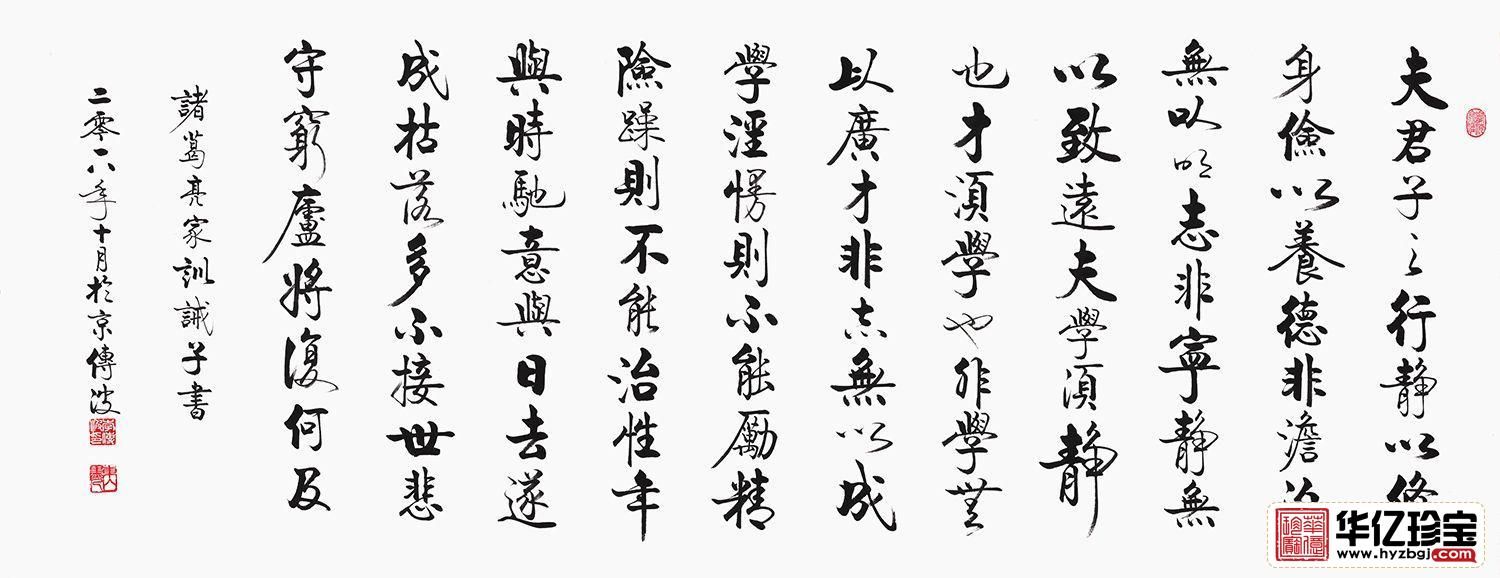 夫君子之行静以修
身儉以養德非澹泊
無以明志非寧静無
以致遠夫學須静
也才須學也非學無
以廣才非志無以成
學淫慢則不能勵精
險躁則不能治性年
與時馳意與日去遂
成枯落多不接世悲
守窮廬將復何及
諸葛亮家訓誡子書
二零一八年十月於京傳波
华亿珍宝
www.hyzbgj.com